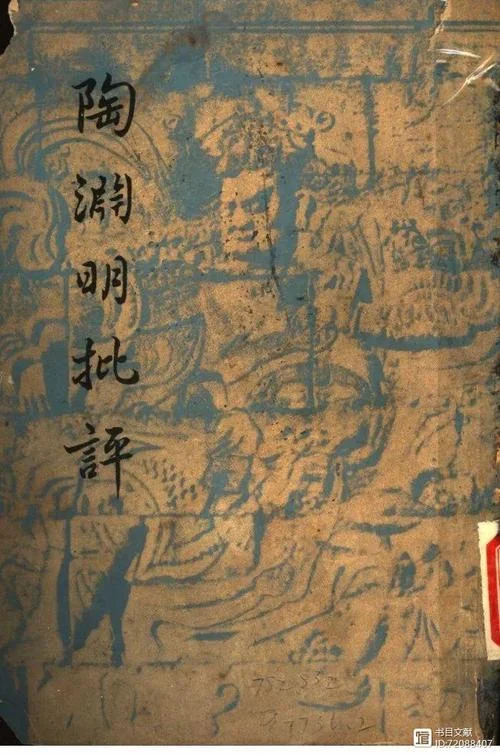 陶淵明批評
752332
书目文献
ID:72088407